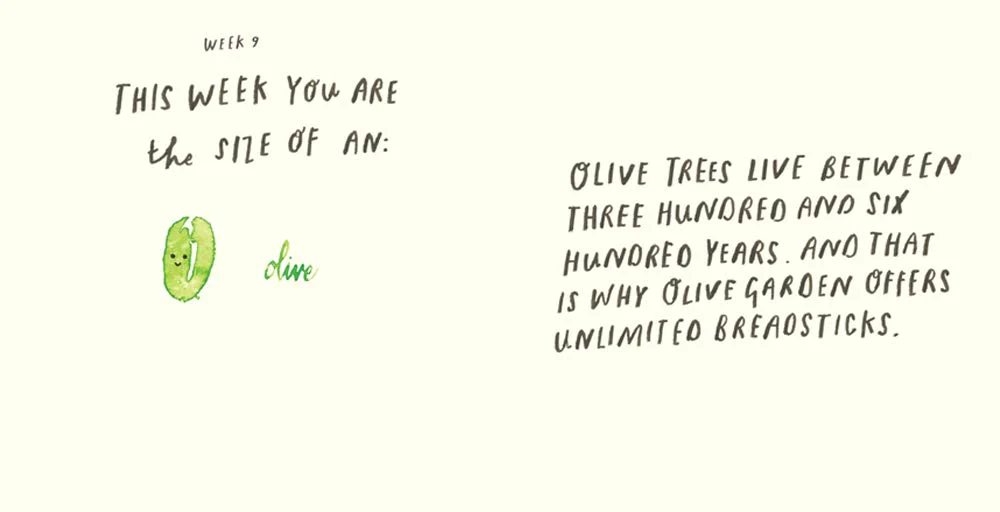 WEEK 9
THIS WEEK YOU ARE
the SIZE OF AN:
olive
OLIVE TREES LIVE BETWEEN
THREE HUNDRED AND SIX
HUNDRED YEARS. AND THAT
IS WHY OLIVE GARDEN OFFERS
UNLIMITED BREADSTICKS.